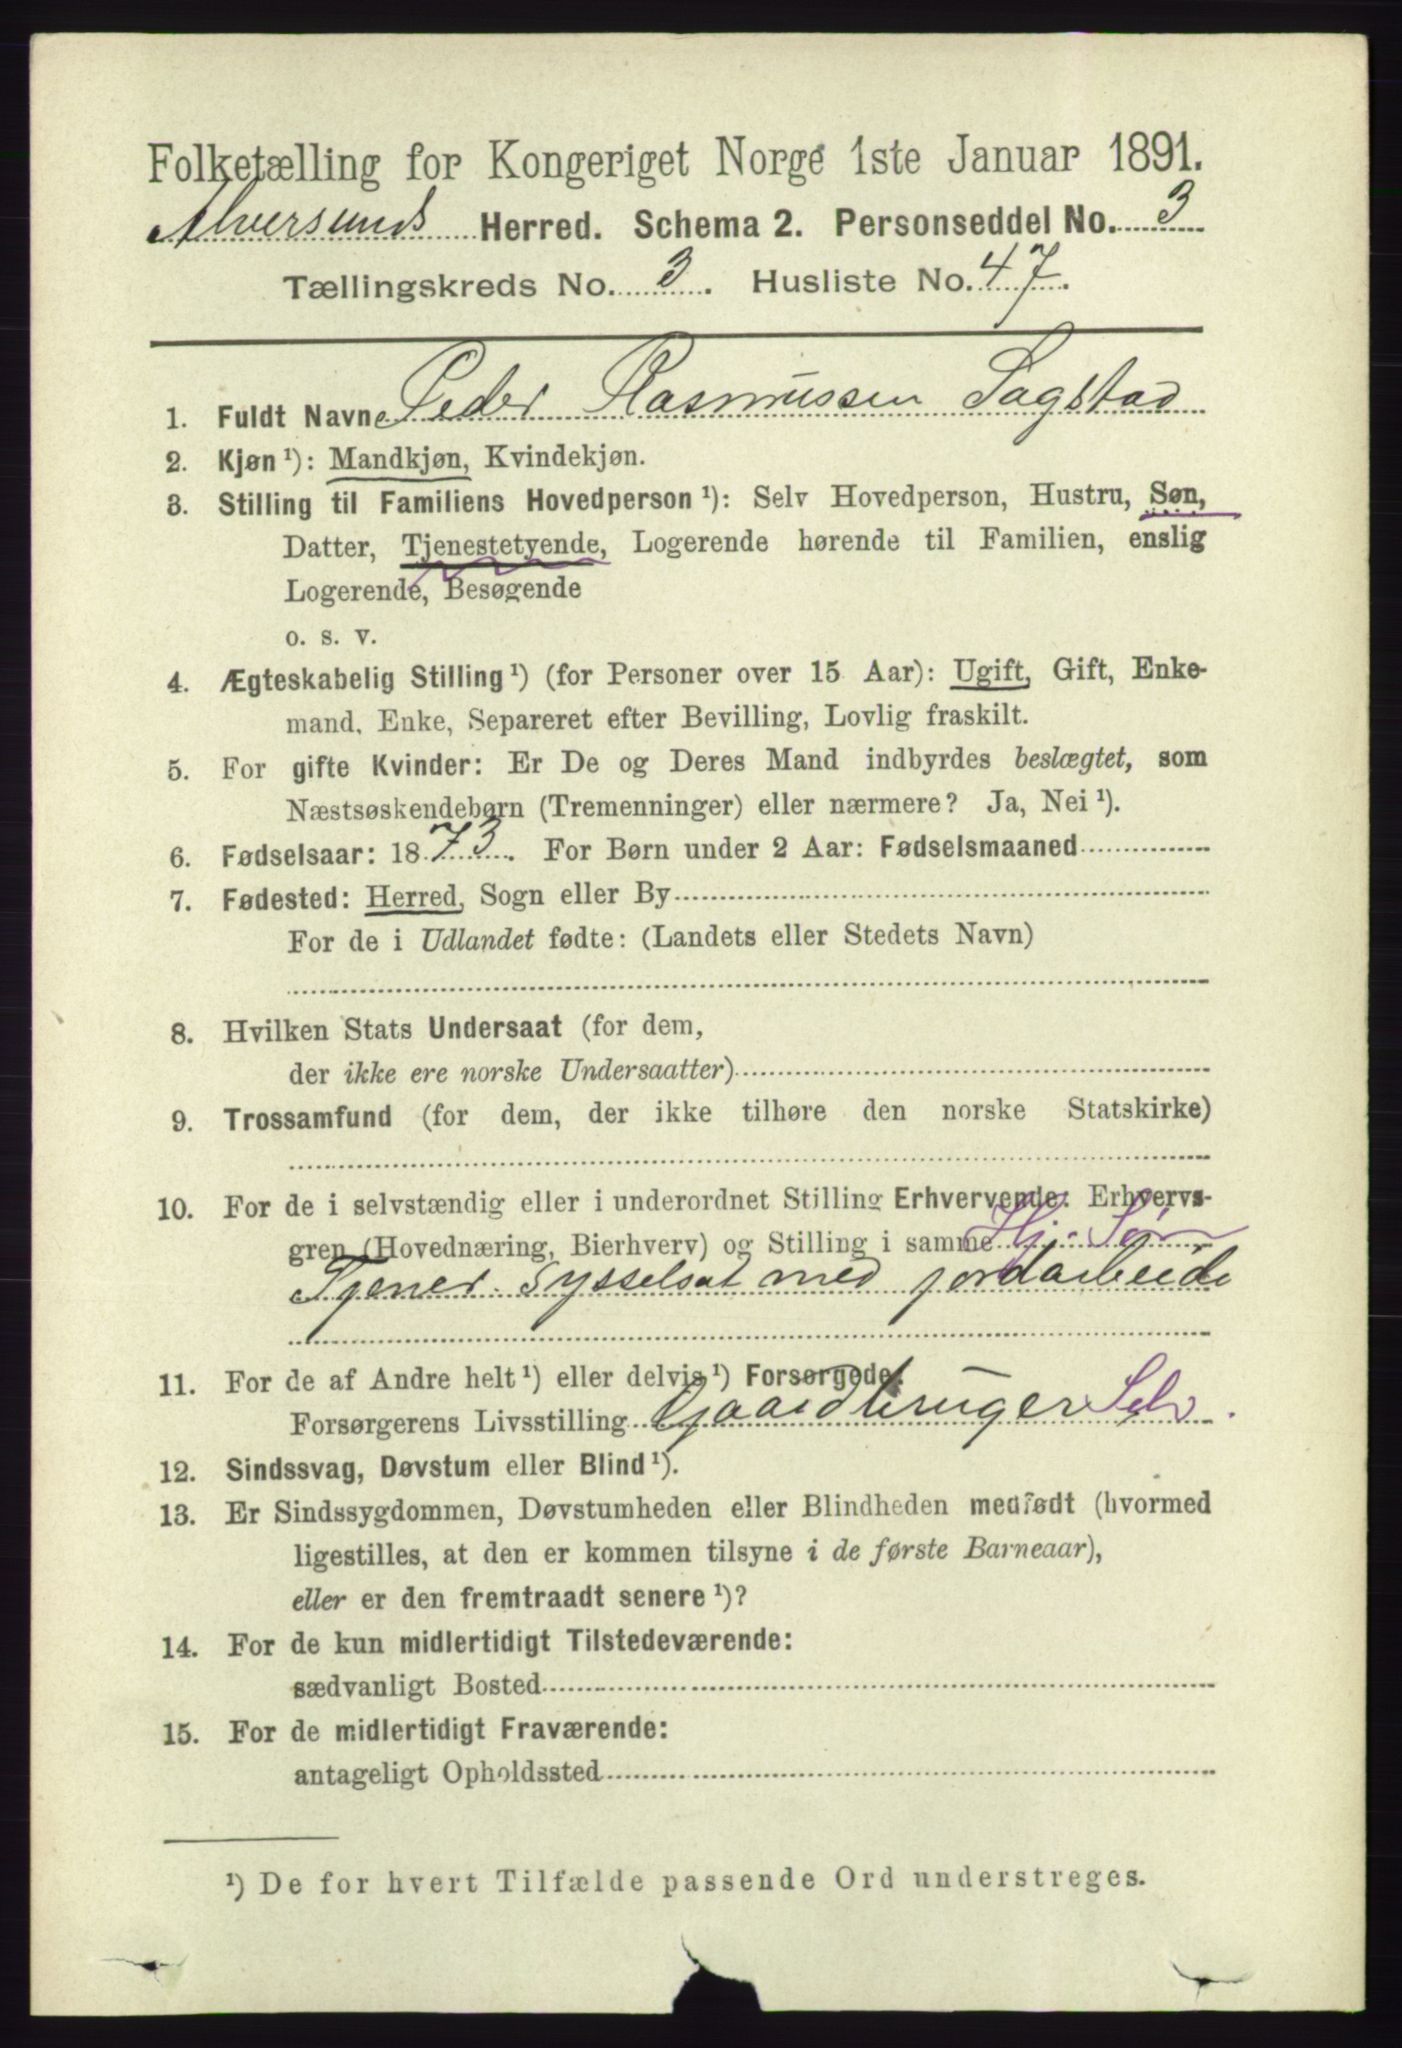 Folketælling for Kongeriget Norge 1ste Januar 1891.
Alversunds Herred. Schema 2. Personseddel No. 3
Tællingskreds No. 3. Husliste No. 47.
1. Fuldt Navn Peder Rasmussen Sagstad
2. Kjøn ¹): Mandkjøn, Kvindekjøn.
3. Stilling til Familiens Hovedperson ¹): Selv Hovedperson, Hustru, Søn,
Datter, Tjenestetyende, Logerende hørende til Familien, enslig
Logerende, Besøgende
o. s. v.
4. Ægteskabelig Stilling ¹) (for Personer over 15 Aar): Ugift, Gift, Enke-
mand, Enke, Separeret efter Bevilling, Lovlig fraskilt.
5. For gifte Kvinder: Er De og Deres Mand indbyrdes beslægtet, som
Næstsøskendebørn (Tremenninger) eller nærmere? Ja, Nei ¹).
6. Fødselsaar: 1873. For Børn under 2 Aar: Fødselsmaaned
7. Fødested: Herred, Sogn eller By
For de i Udlandet fødte: (Landets eller Stedets Navn)
8. Hvilken Stats Undersaat (for dem,
der ikke ere norske Undersaatter)
9. Trossamfund (for dem, der ikke tilhøre den norske Statskirke)
10. For de i selvstændig eller i underordnet Stilling Erhvervende: Erhvervs-
gren (Hovednæring, Bierhverv) og Stilling i samme Hj. Søn
Tjener. Sysselsat med jordarbeide
11. For de af Andre helt ¹) eller delvis ¹) Forsørgede:
Forsørgerens Livsstilling Gaardbruger Selv.
12. Sindssvag, Døvstum eller Blind ¹).
13. Er Sindssygdommen, Døvstumheden eller Blindheden medfødt (hvormed
ligestilles, at den er kommen tilsyne i de første Barneaar),
eller er den fremtraadt senere ¹)?
14. For de kun midlertidigt Tilstedeværende:
sædvanligt Bosted
15. For de midlertidigt Fraværende:
antageligt Opholdssted
¹) De for hvert Tilfælde passende Ord understreges.